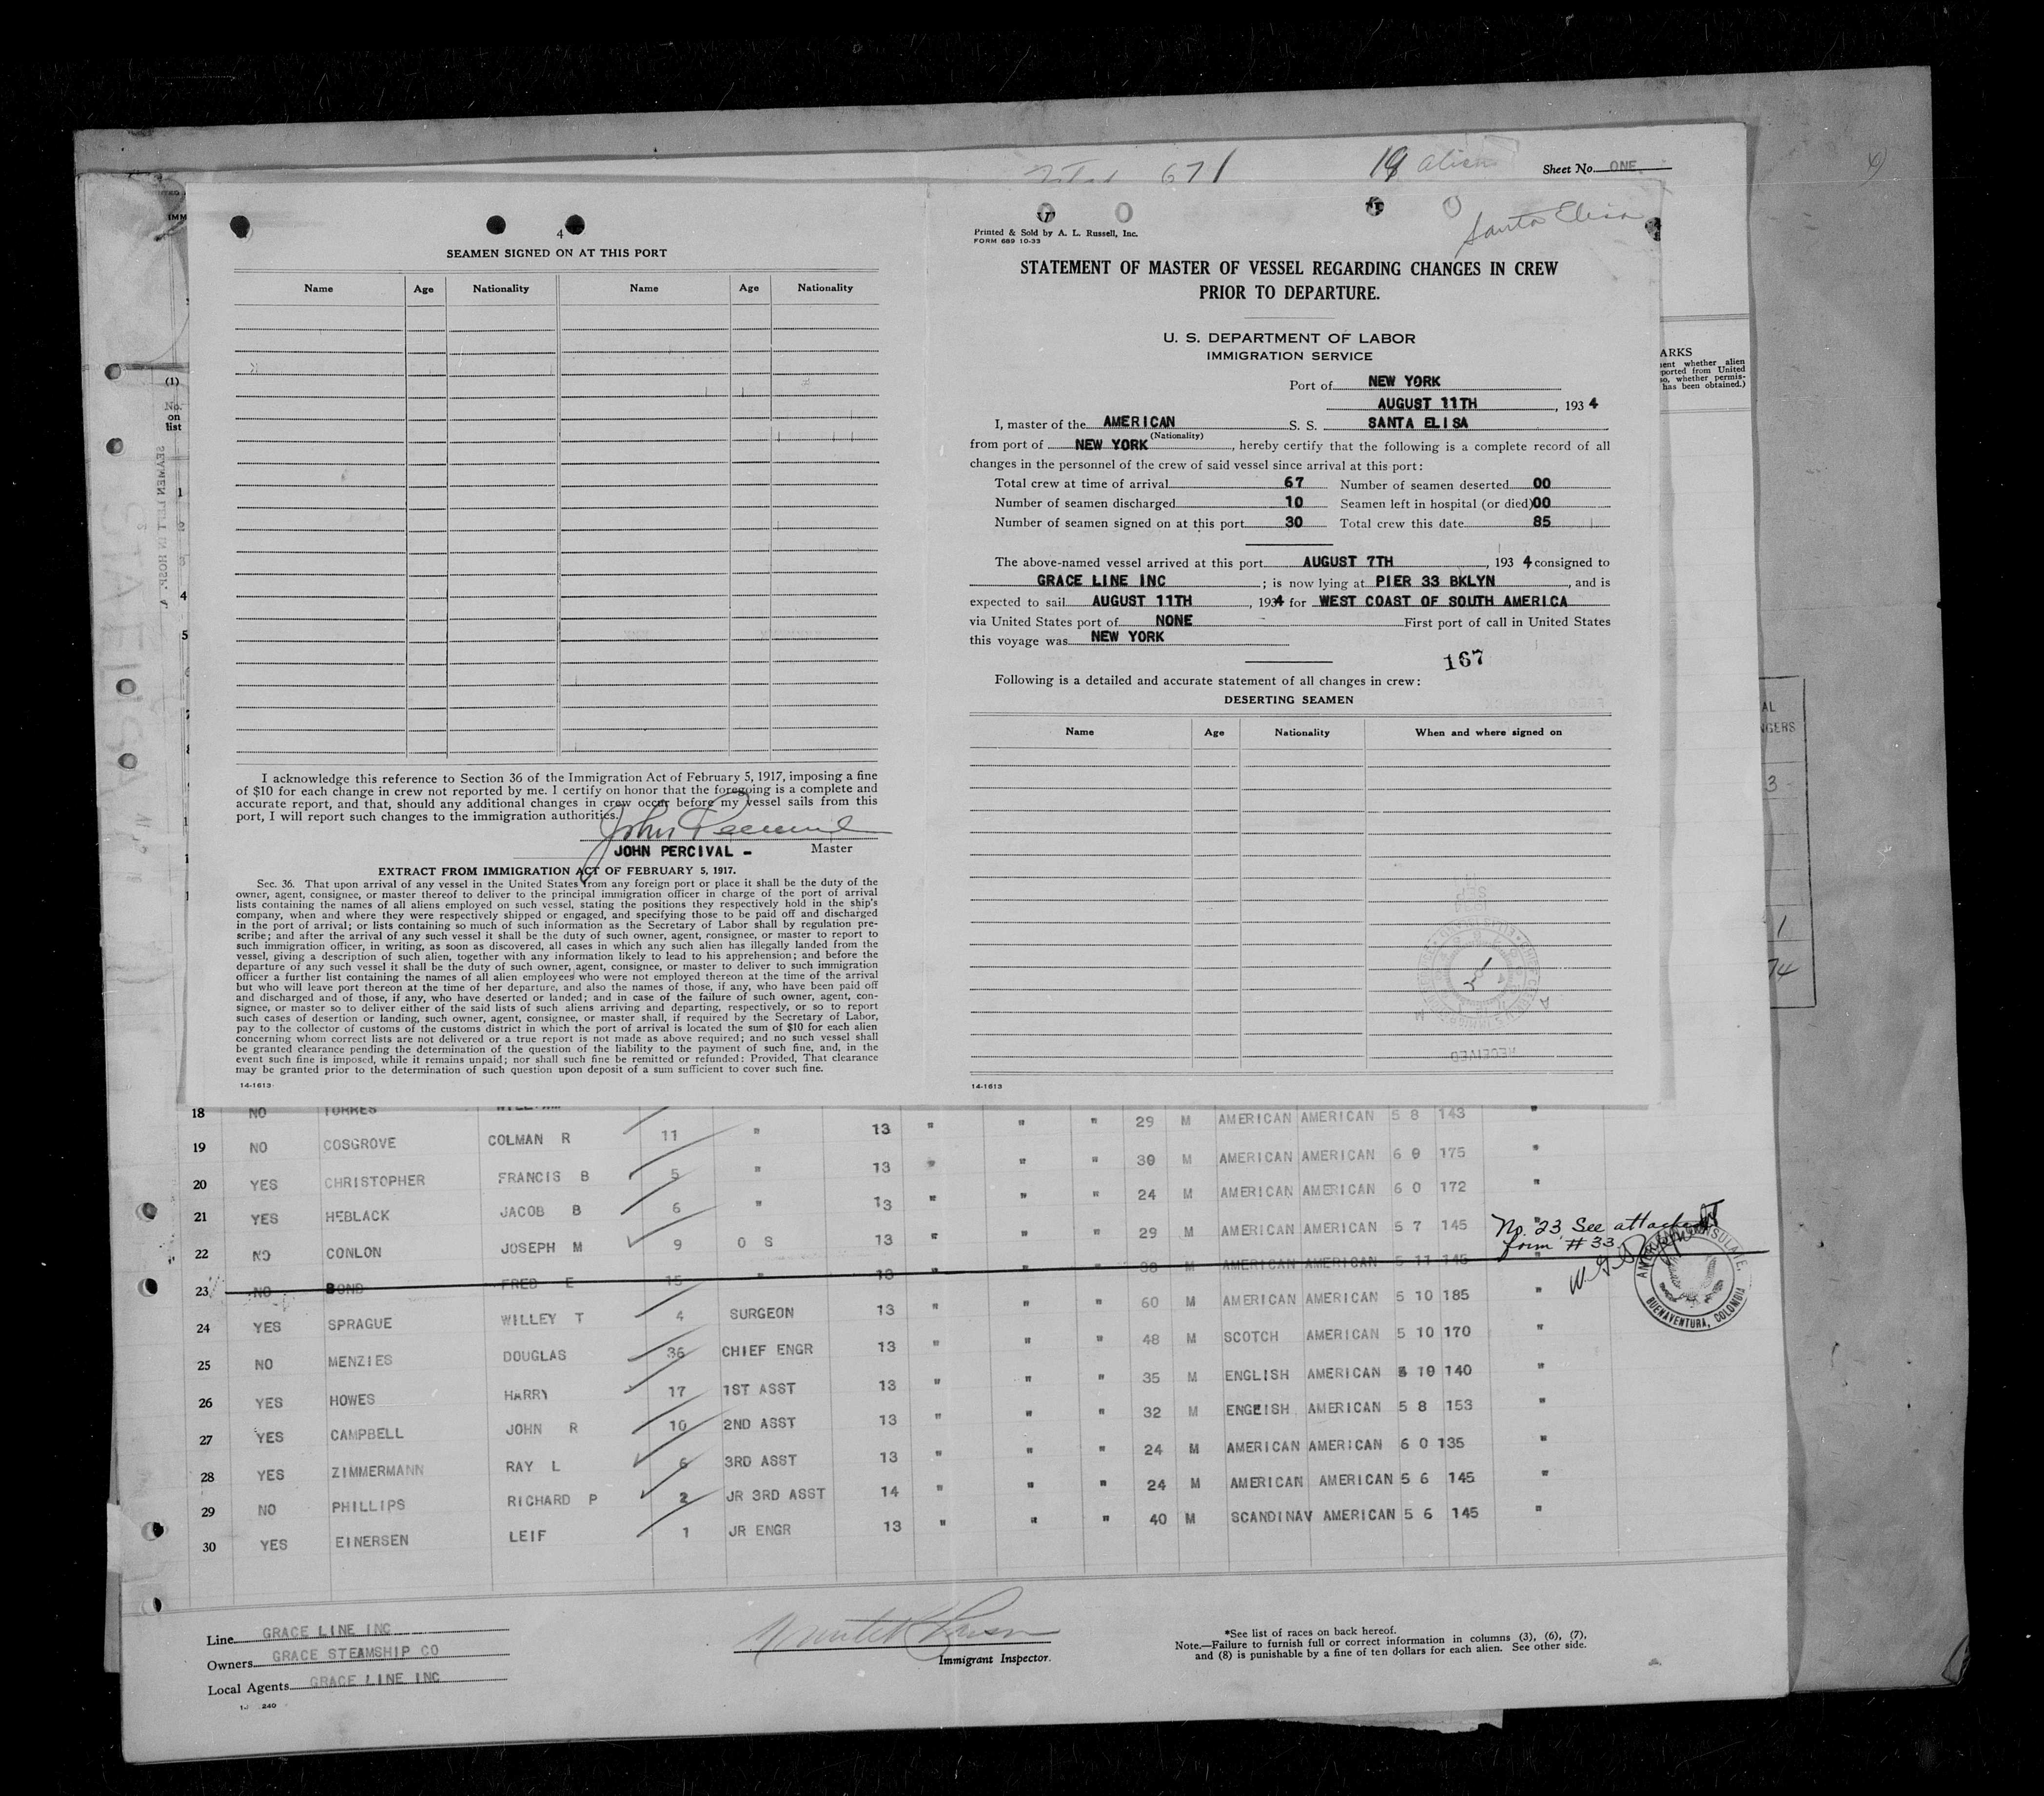 671
Sheet No. ONE
4
SEAMEN SIGNED ON AT THIS PORT
Name Age Nationality Name Age Nationality
I acknowledge this reference to Section 36 of the Immigration Act of February 5, 1917, imposing a fine
of $10 for each change in crew not reported by me. I certify on honor that the foregoing is a complete and
accurate report, and that, should any additional changes in crew occur before my vessel sails from this
port, I will report such changes to the immigration authorities.
JOHN PERCIVAL - Master
EXTRACT FROM IMMIGRATION ACT OF FEBRUARY 5, 1917.
Sec. 36. That upon arrival of any vessel in the United States from any foreign port or place it shall be the duty of the
owner, agent, consignee, or master thereof to deliver to the principal immigration officer in charge of the port of arrival
lists containing the names of all aliens employed on such vessel, stating the positions they respectively hold in the ship's
company, when and where they were respectively shipped or engaged, and specifying those to be paid off and discharged
in the port of arrival; or lists containing so much of such information as the Secretary of Labor shall by regulation pre-
scribe; and after the arrival of any such vessel it shall be the duty of such owner, agent, consignee, or master to report to
such immigration officer, in writing, as soon as discovered, all cases in which any such alien has illegally landed from the
vessel, giving a description of such alien, together with any information likely to lead to his apprehension; and before the
departure of any such vessel it shall be the duty of such owner, agent, consignee, or master to deliver to such immigration
officer a further list containing the names of all alien employees who were not employed thereon at the time of the arrival
but who will leave port thereon at the time of her departure, and also the names of those, if any, who have been paid off
and discharged and of those, if any, who have deserted or landed; and in case of the failure of such owner, agent, con-
signee, or master so to deliver either of the said lists of such aliens arriving and departing, respectively, or so to report
such cases of desertion or landing, such owner, agent, consignee, or master shall, if required by the Secretary of Labor,
pay to the collector of customs of the customs district in which the port of arrival is located the sum of $10 for each alien
concerning whom correct lists are not delivered or a true report is not made as above required; and no such vessel shall
be granted clearance pending the determination of the question of the liability to the payment of such fine, and, in the
event such fine is imposed, while it remains unpaid; nor shall such fine be remitted or refunded: Provided, That clearance
may be granted prior to the determination of such question upon deposit of a sum sufficient to cover such fine.
14-1613
Santa Elisa
Printed & Sold by A. L. Russell, Inc.
FORM 689 10-33
STATEMENT OF MASTER OF VESSEL REGARDING CHANGES IN CREW
PRIOR TO DEPARTURE.
U. S. DEPARTMENT OF LABOR
IMMIGRATION SERVICE
Port of NEW YORK
AUGUST 11TH, 1934
I, master of the AMERICAN S. S. SANTA ELISA
(Nationality)
from port of NEW YORK, hereby certify that the following is a complete record of all
changes in the personnel of the crew of said vessel since arrival at this port:
Total crew at time of arrival 67 Number of seamen deserted 00
Number of seamen discharged 10 Seamen left in hospital (or died) 00
Number of seamen signed on at this port 30 Total crew this date 85
The above-named vessel arrived at this port AUGUST 7TH, 1934 consigned to
GRACE LINE INC; is now lying at PIER 33 BKLYN, and is
expected to sail AUGUST 11TH, 1934 for WEST COAST OF SOUTH AMERICA
via United States port of NONE First port of call in United States
this voyage was NEW YORK
167
Following is a detailed and accurate statement of all changes in crew:
DESERTING SEAMEN
Name Age Nationality When and where signed on
14-1613
(1)
No.
on
list
1
4
5
ARKS
ent whether alien
ported from United
so, whether permis-
has been obtained.)
AL
NGERS
3
1
74
18 NO TORRES " 29 M AMERICAN AMERICAN 5 8 143 "
19 NO COSGROVE COLMAN R 11 " 13 " " " 30 M AMERICAN AMERICAN 6 0 175 "
20 YES CHRISTOPHER FRANCIS B 5 " 13 " " " 24 M AMERICAN AMERICAN 6 0 172 "
21 YES HEBLACK JACOB B 6 " 13 " " " 29 M AMERICAN AMERICAN 5 7 145 "
22 NO CONLON JOSEPH M 9 O S 13 " " " 38 M AMERICAN AMERICAN 5 11 145
23 NO BOND FRED E 15 " 13 " " "
No. 23, See attached
form #33
AMERICAN CONSULATE.
BUENAVENTURA, COLOMBIA
24 YES SPRAGUE WILLEY T 4 SURGEON 13 " " " 60 M AMERICAN AMERICAN 5 10 185 "
25 NO MENZIES DOUGLAS 36 CHIEF ENGR 13 " " " 48 M SCOTCH AMERICAN 5 10 170 "
26 YES HOWES HARRY 17 1ST ASST 13 " " " 35 M ENGLISH AMERICAN 5 10 140 "
27 YES CAMPBELL JOHN R 10 2ND ASST 13 " " " 32 M ENGLISH AMERICAN 5 8 153 "
28 YES ZIMMERMANN RAY L 6 3RD ASST 13 " " " 24 M AMERICAN AMERICAN 6 0 135 "
29 NO PHILLIPS RICHARD P 2 JR 3RD ASST 14 " " " 24 M AMERICAN AMERICAN 5 6 145 "
30 YES EINERSEN LEIF 1 JR ENGR 13 " " " 40 M SCANDINAV AMERICAN 5 6 145 "
Line GRACE LINE INC
Owners GRACE STEAMSHIP CO
Local Agents GRACE LINE INC
Immigrant Inspector.
*See list of races on back hereof.
Note.—Failure to furnish full or correct information in columns (3), (6), (7),
and (8) is punishable by a fine of ten dollars for each alien. See other side.